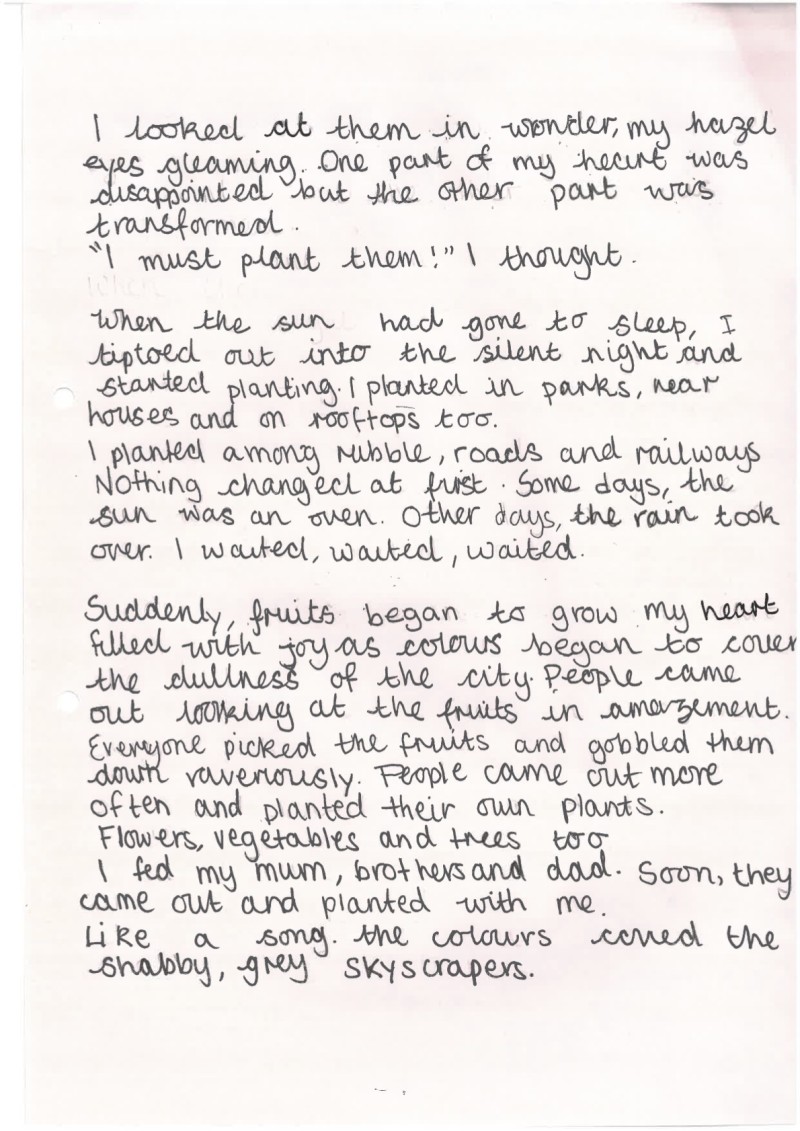 I looked at them in wonder, my hazel
eyes gleaming. One part of my heart was
disappointed but the other part was
transformed.
"I must plant them!" I thought.
When the sun had gone to sleep, I
tiptoed out into the silent night and
started planting. I planted in parks, near
houses and on rooftops too.
I planted among rubble, roads and railways
Nothing changed at first. Some days, the
sun was an oven. Other days, the rain took
over. I waited, waited, waited.
Suddenly, fruits began to grow my heart
filled with joy as colours began to cover
the dullness of the city. People came
out looking at the fruits in amazement.
Everyone picked the fruits and gobbled them
down ravenously. People came out more
often and planted their own plants.
Flowers, vegetables and trees too
I fed my mum, brothers and dad. Soon, they
came out and planted with me.
Like a song. the colours the
shabby, grey skyscrapers.